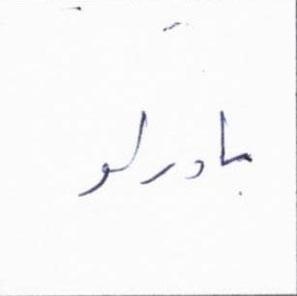 بادرلو